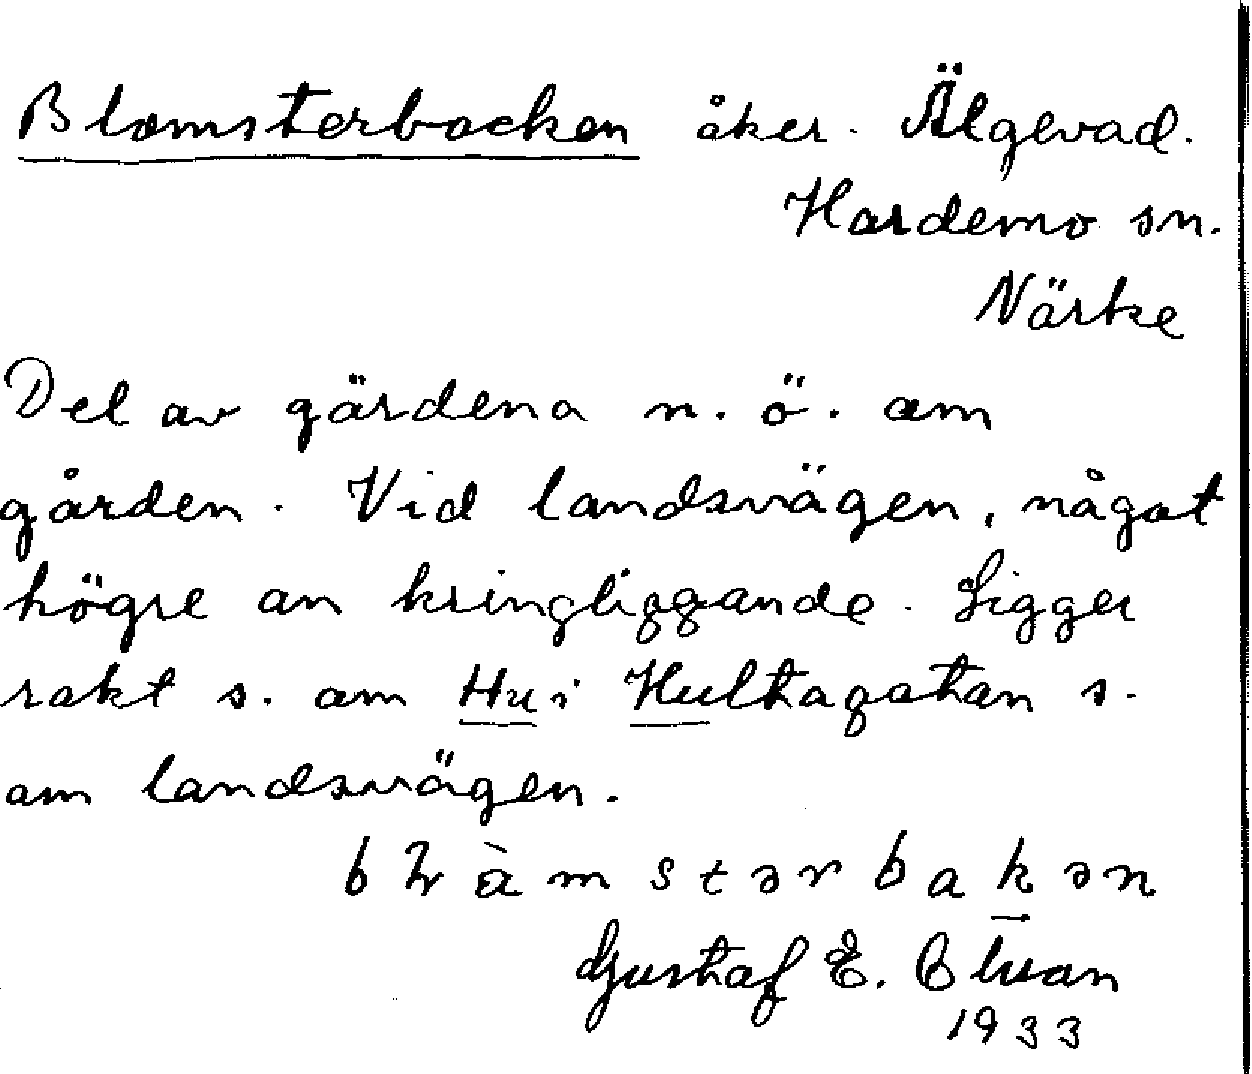 Blomsterbacken åker. Älgevad.
Hardemo sn.
Närke
Del av gärdena n. ö. om
gården. Vid landsvägen, något
högre än kringliggande. Ligger
rakt s. om Hu i Hultagatan s.
om landsvägen.